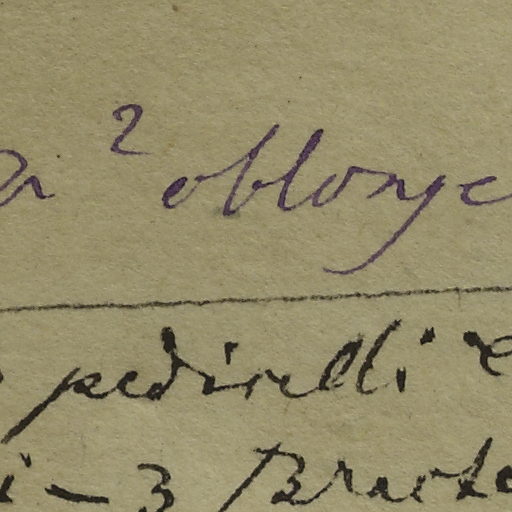 2 oblonge
pedicelli
i - 3 Bracte